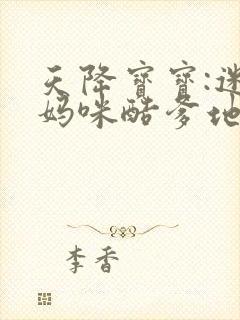 天降寶寶:迷
媽咪酷爹地
李香